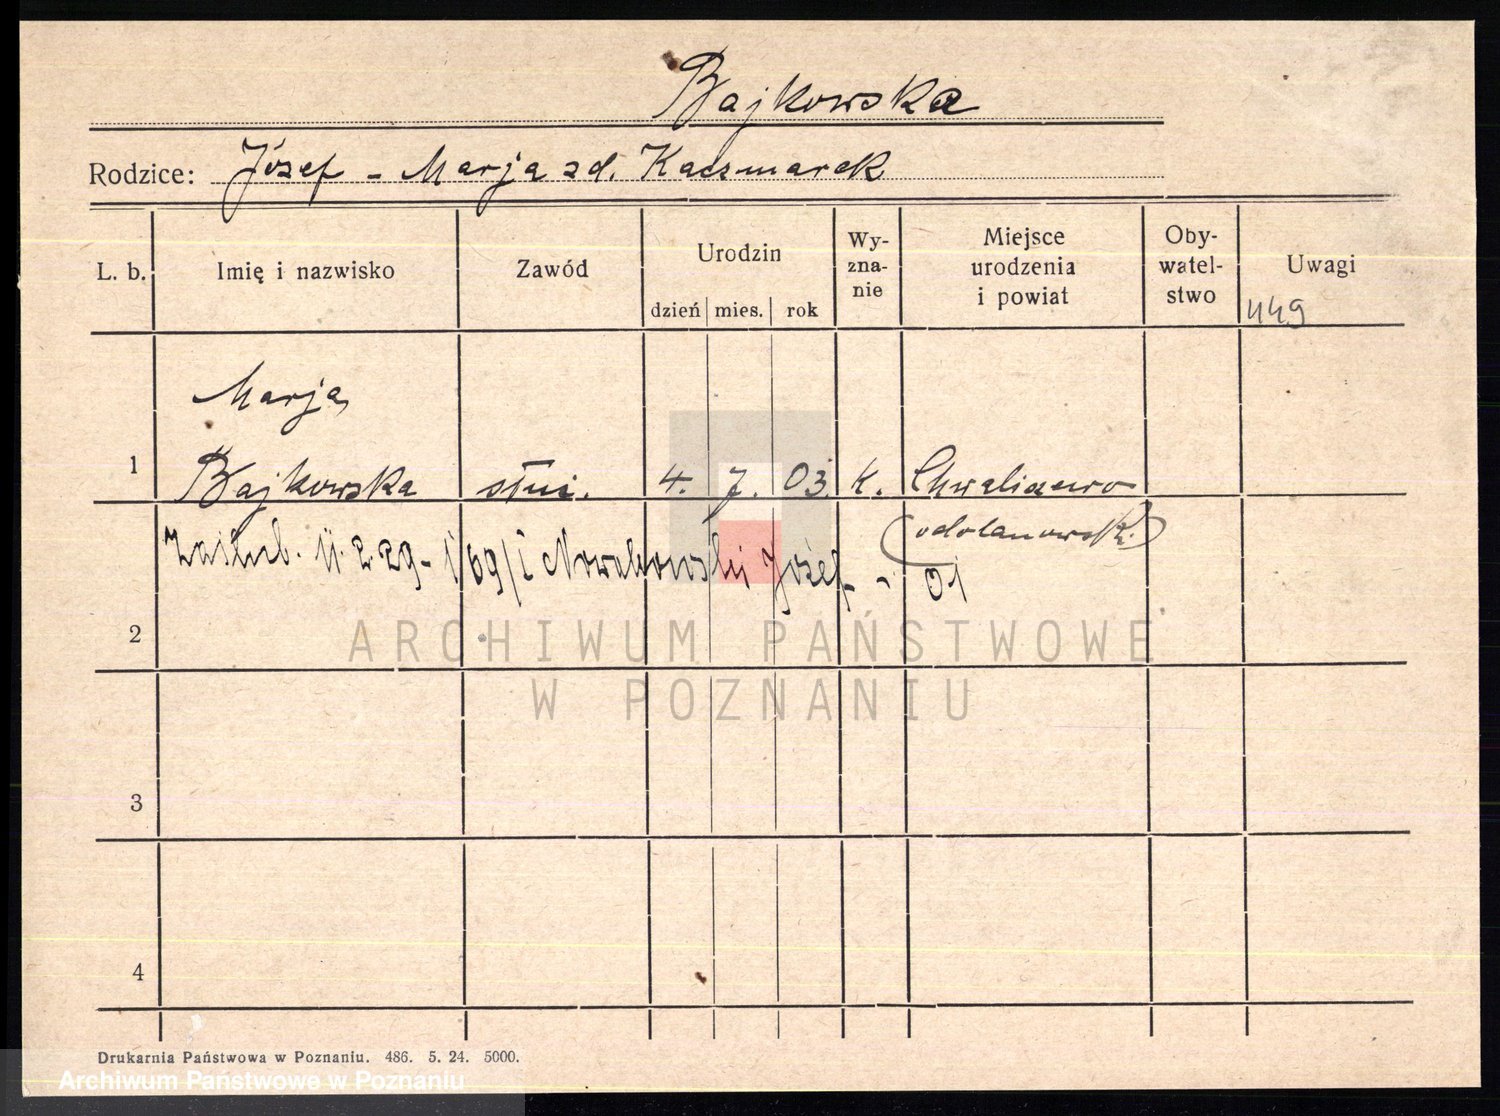 Bajkowska
Rodzice: Józef - Marja zd. Kaczmarek
L. b. Imię i nazwisko Zawód Urodzin dzień mies. rok Wy-zna-nie Miejsce urodzenia i powiat Oby-watel-stwo Uwagi
449
Marja
1 Bajkowska służ. 4. 7. 03 k. Chwaliszewo
(odolanowsk.)
Zaślub. 11. 2. 29 - 169/I Nowakowski Józef -
2
3
4
Drukarnia Państwowa w Poznaniu. 486. 5. 24. 5000.
ARCHIWUM PAŃSTWOWE
W POZNANIU
Archiwum Państwowe w Poznaniu